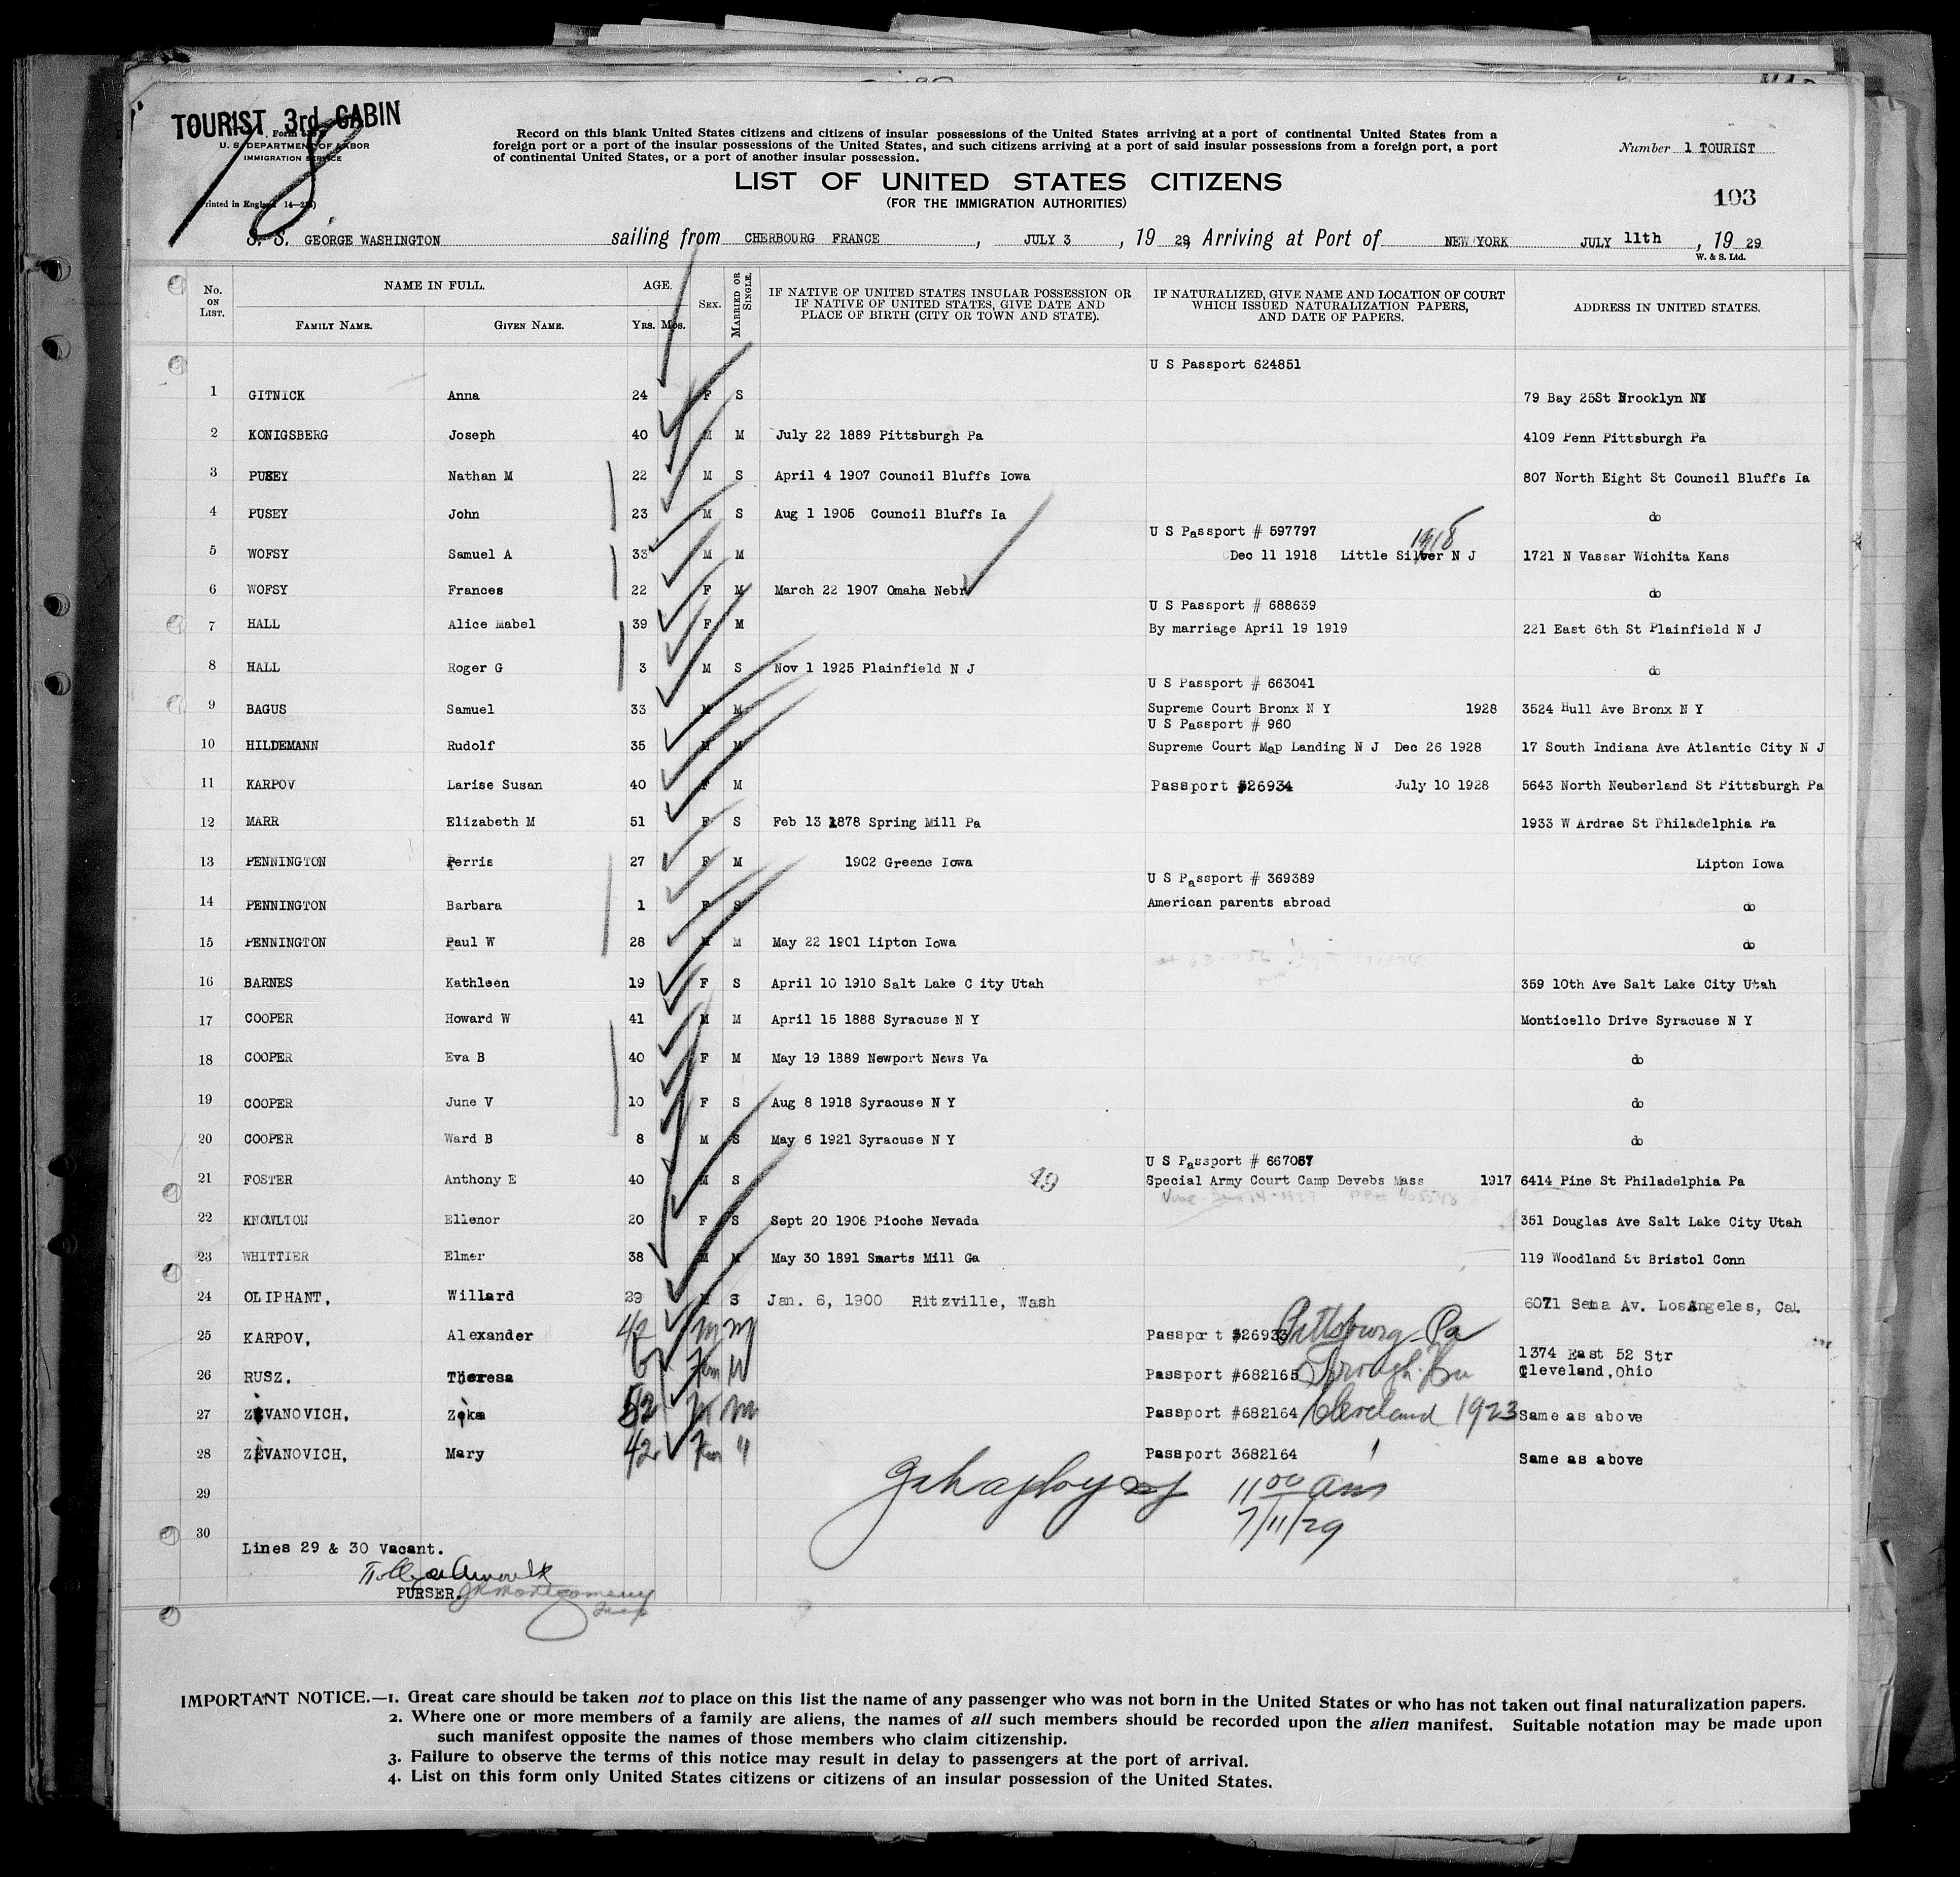 TOURIST 3rd CABIN
U. S. DEPARTMENT OF LABOR
IMMIGRATION SERVICE
18
Record on this blank United States citizens and citizens of insular possessions of the United States arriving at a port of continental United States from a
foreign port or a port of the insular possessions of the United States, and such citizens arriving at a port of said insular possessions from a foreign port, a port
of continental United States, or a port of another insular possession.
Number 1 TOURIST
LIST OF UNITED STATES CITIZENS
(FOR THE IMMIGRATION AUTHORITIES)
103
S. S. GEORGE WASHINGTON sailing from CHERBOURG FRANCE, JULY 3, 19 29, Arriving at Port of NEW YORK JULY 11th, 19 29
W. & S. Ltd.
No. ON LIST. NAME IN FULL. AGE. SEX. MARRIED OR SINGLE. IF NATIVE OF UNITED STATES INSULAR POSSESSION OR IF NATIVE OF UNITED STATES, GIVE DATE AND PLACE OF BIRTH (CITY OR TOWN AND STATE). IF NATURALIZED, GIVE NAME AND LOCATION OF COURT WHICH ISSUED NATURALIZATION PAPERS, AND DATE OF PAPERS. ADDRESS IN UNITED STATES.
FAMILY NAME. GIVEN NAME. YRS. MOS.
U S Passport 624851
1 GITNICK Anna 24 F S 79 Bay 25St Brooklyn NY
2 KONIGSBERG Joseph 40 M M July 22 1889 Pittsburgh Pa 4109 Penn Pittsburgh Pa
3 PUSEY Nathan M 22 M S April 4 1907 Council Bluffs Iowa 807 North Eight St Council Bluffs Ia
4 PUSEY John 23 M S Aug 1 1905 Council Bluffs Ia do
U S Passport # 597797 1918
5 WOFSY Samuel A 33 M M Dec 11 1918 Little Silver N J 1721 N Vassar Wichita Kans
6 WOFSY Frances 22 F M March 22 1907 Omaha Nebr do
U S Passport # 688639
7 HALL Alice Mabel 39 F M By marriage April 19 1919 221 East 6th St Plainfield N J
8 HALL Roger G 3 M S Nov 1 1925 Plainfield N J do
U S Passport # 663041
9 BAGUS Samuel 33 M M Supreme Court Bronx N Y 1928 3524 Hull Ave Bronx N Y
U S Passport # 960
10 HILDEMANN Rudolf 35 M M Supreme Court Map Landing N J Dec 26 1928 17 South Indiana Ave Atlantic City N J
11 KARPOV Larise Susan 40 F M Passport #26934 July 10 1928 5643 North Neuberland St Pittsburgh Pa
12 MARR Elizabeth M 51 F S Feb 13 1878 Spring Mill Pa 1933 W Ardrae St Philadelphia Pa
13 PENNINGTON Perris 27 F M 1902 Greene Iowa Lipton Iowa
U S Passport # 369389
14 PENNINGTON Barbara 1 F S American parents abroad do
15 PENNINGTON Paul W 28 M M May 22 1901 Lipton Iowa do
16 BARNES Kathleen 19 F S April 10 1910 Salt Lake C ity Utah 359 10th Ave Salt Lake City Utah
17 COOPER Howard W 41 M M April 15 1888 Syracuse N Y Monticello Drive Syracuse N Y
18 COOPER Eva B 40 F M May 19 1889 Newport News Va do
19 COOPER June V 10 F S Aug 8 1918 Syracuse N Y do
20 COOPER Ward B 8 M S May 6 1921 Syracuse N Y do
U S Passport # 667057
21 FOSTER Anthony E 40 M S 49 Special Army Court Camp Devebs Mass 1917 6414 Pine St Philadelphia Pa
22 KNOWLTON Ellenor 20 F S Sept 20 1908 Pioche Nevada 351 Douglas Ave Salt Lake City Utah
23 WHITTIER Elmer 38 M M May 30 1891 Smarts Mill Ga 119 Woodland St Bristol Conn
24 OLIPHANT, Willard 29 M S Jan. 6, 1900 Ritzville, Wash 6071 Sema Av. LosAngeles, Cal.
25 KARPOV, Alexander 42 M M Passport #26933 Pittsburg - Pa
1374 East 52 Str
26 RUSZ, Theresa Passport #682165 Cleveland,Ohio
27 ZIVANOVICH, Zika 52 M M Passport #682164 Cleveland 1923 Same as above
28 ZIVANOVICH, Mary 42 Fem " Passport 3682164 Same as above
29
11 00 am
7/11/29
30
Lines 29 & 30 Vacant.
PURSER. JR Montgomery
IMPORTANT NOTICE.—1. Great care should be taken not to place on this list the name of any passenger who was not born in the United States or who has not taken out final naturalization papers.
2. Where one or more members of a family are aliens, the names of all such members should be recorded upon the alien manifest. Suitable notation may be made upon
such manifest opposite the names of those members who claim citizenship.
3. Failure to observe the terms of this notice may result in delay to passengers at the port of arrival.
4. List on this form only United States citizens or citizens of an insular possession of the United States.